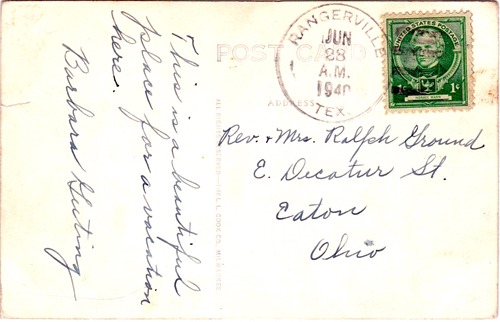 This is a beautiful
place for a vacation
here.
Barbara Guting
POST CARD
ADDRESS
RANGERVILLE
JUN
28
A.M.
1940
TEX.
UNITED STATES POSTAGE
HORACE MANN
1¢
Rev. & Mrs. Ralph Ground
E. Decatur St.
Eaton
Ohio
L. L. COOK CO. MILWAUKEE